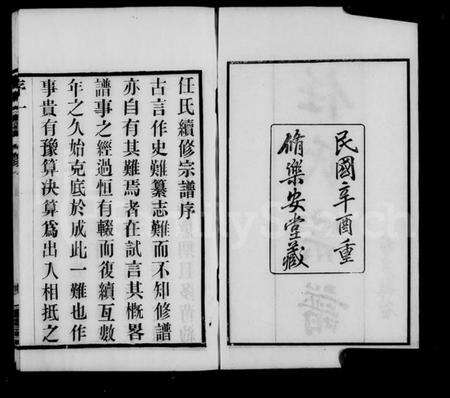 民國辛酉重
脩樂安堂藏
任氏續修宗譜序
古言作史難纂志難而不知修譜
亦自有其難焉者在試言其概畧
譜事之經過恒有輟而復續互數
年之久始克底於成此一難也作
事貴有豫算決算爲出入相抵之